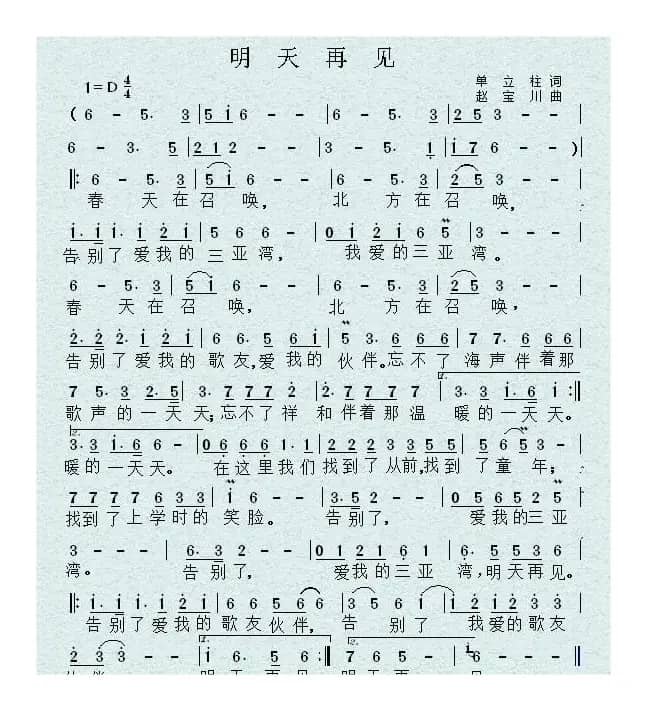 明天再见
1=D 4/4 单立柱 词
赵宝川 曲
( 6 - 5. 3 | 5 i 6 - - | 6 - 5. 3 | 2 5 3 - - |
6 - 3. 5 | 2 1 2 - - | 3 - 5. 1 | i 7 6 - - )
|: 6 - 5. 3 | 5 i 6 - - | 6 - 5. 3 | 2 5 3 - - |
春 天 在 召 唤， 北 方 在 召 唤，
i. i i. i 2 i | 5 6 6 - | 0 i 2 i 6 5 | 3 - - - |
告别了爱我的三亚湾， 我爱的三亚湾。
6 - 5. 3 | 5 i 6 - - | 6 - 5. 3 | 2 5 3 - - |
春 天 在 召 唤， 北 方 在 召 唤，
2. 2 2. i 2 i | 6 6. 5 6 i | 5 3. 6 6 6 | 7 7. 6 6 6 |
告别了爱我的歌友，爱我的伙伴。忘不了海声伴着那
7 5. 3 2. 5 | 3. 7 7 7 2 | 2. 7 7 7 7 | 3. 3 i. 6 i :|
歌声的一天天；忘不了祥和伴着那温暖的一天天。
3. 3 i. 6 6 - | 0 6 6 6 1. 1 | 2 2 2 3 3 5 5 | 5 6 5 3 - |
暖的一天天。 在这里我们找到了从前，找到了童年；
7 7 7 7 6 3 3 | i 6 - - | 3. 5 2 - - | 0 5 6 5 2 5 |
找到了上学时的笑脸。 告别了， 爱我的三亚
3 - - - | 6. 3 2 - - | 0 1 2 1 6 1 | 6. 5 5 3 6 |
湾。 告别了， 爱我的三亚湾，明天再见。
|: i. i i. i 2 i | 6 6 5 6 6 | 3 5 6 i | i 5 5 3 3 |
告别了爱我的歌友伙伴， 告别了 我爱的歌友
2 3 3 - - | i 6. 5 6 :| 7 6 5 - | 6 - - - ||